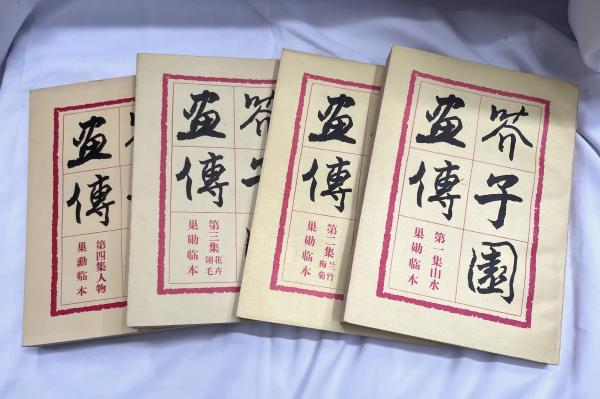 芥子園
畫傳
第一集山水
巢勋临本
畫傳
第二集兰竹梅菊
巢勋临本
畫傳
第三集花卉翎毛
巢勋临本
畫傳
第四集人物
巢勳临本